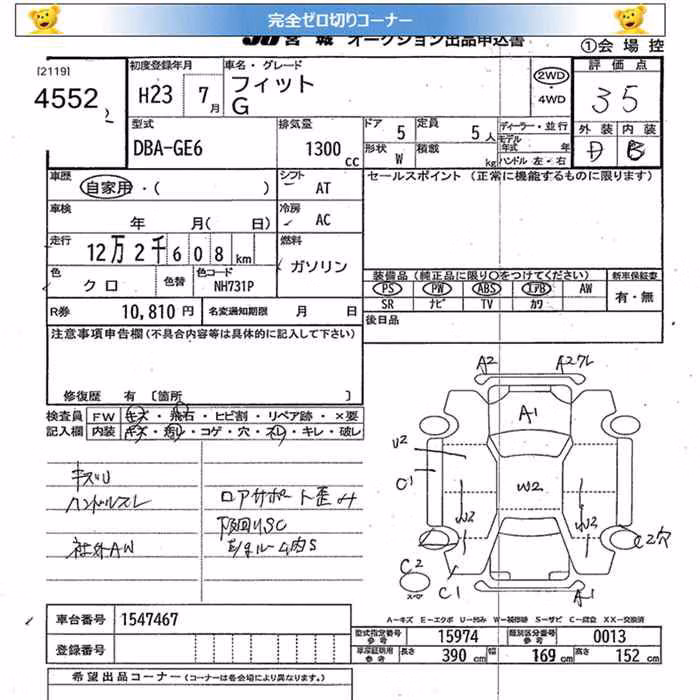 完全ゼロ切りコーナー
JU宮城 オークション出品申込書
①会場控
[2119]
4552
2
初度登録年月
H23 7月
車名・グレード
フィット
G
2WD
・4WD
評価点
3 5
外装 内装
D B
型式
DBA-GE6
排気量
1300 cc
ドア 5
定員 5人
ディーラー・並行
モデル年式 年
形状 W
積載 kg
ハンドル 左・右
車歴
自家用・( )
シフト AT
セールスポイント (正常に機能するものに限ります)
車検
年 月( 日)
冷房 AC
走行
12万2千608km
燃料
ガソリン
色
クロ
色替
色コード
NH731P
装備品(純正品に限り○をつけてください)
新車保証書
PS PW ABS エアB AW
有・無
SR ナビ TV カワ
R券 10,810円
名変通知期限 月 日
後日品
注意事項申告欄(不具合内容等は具体的に記入して下さい)
修復歴 有 [箇所 ]
検査員 FW キズ・飛石・ヒビ割・リペア跡・×要
記入欄 内装 キズ・汚れ・コゲ・穴・スレ・キレ・破レ
キズU
ハンドルスレ
社外AW
ロアサポート歪み
下廻りSC
A2
A2ワレ
A1
U2
C1
W2
W2
W2
C2穴
C2
スマ
C1
A1
A-キズ E-エクボ U-凹み W-補修跡 S-サビ C-腐食 XX-交換済
車台番号 1547467
登録番号
型式指定番号 参考 15974
類別区分番号 参考 0013
車庫証明用 参考 長さ 390cm 幅 169cm 高さ 152cm
希望出品コーナー(コーナーは各会場により異なります。)